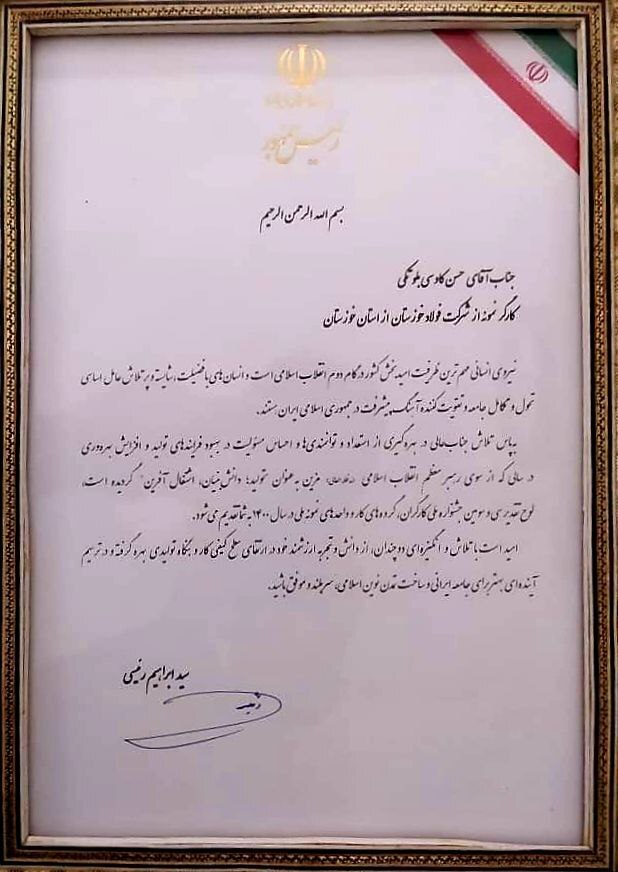 رئیس جمهور
بسم الله الرحمن الرحیم
جناب آقای حسن کاوسی بلوتکی
کارگر نمونه از شرکت فولاد خوزستان از استان خوزستان
نیروی انسانی مهم ترین ظرفیت امید بخش کشور در گام دوم انقلاب اسلامی است و انسان های با فضیلت، شایسته و پر تلاش عامل اساسی
تحول و تکامل جامعه و تقویت کننده آهنگ پیشرفت در جمهوری اسلامی ایران هستند.
بپاس تلاش جنابعالی در بهره گیری از استعداد و توانمندی ها و احساس مسئولیت در بهبود فرایندهای تولید و افزایش بهره وری
در سالی که از سوی رهبر معظم انقلاب اسلامی مزین به عنوان "تولید؛ دانش بنیان، اشتغال آفرین" گردیده است،
لوح تقدیر سی و سومین جشنواره ملی کارگران، گروه های کار و واحدهای نمونه ملی در سال ۱۴۰۰ به شما تقدیم می شود.
امید است با تلاش و انگیزه ای دو چندان، از دانش و تجربه ارزشمند خود در ارتقای سطح کیفی کار و بنگاه تولیدی بهره گرفته و در ترسیم
آینده ای بهتر برای جامعه ایرانی و ساخت تمدن نوین اسلامی، سربلند و موفق باشید.
سید ابراهیم رئیسی